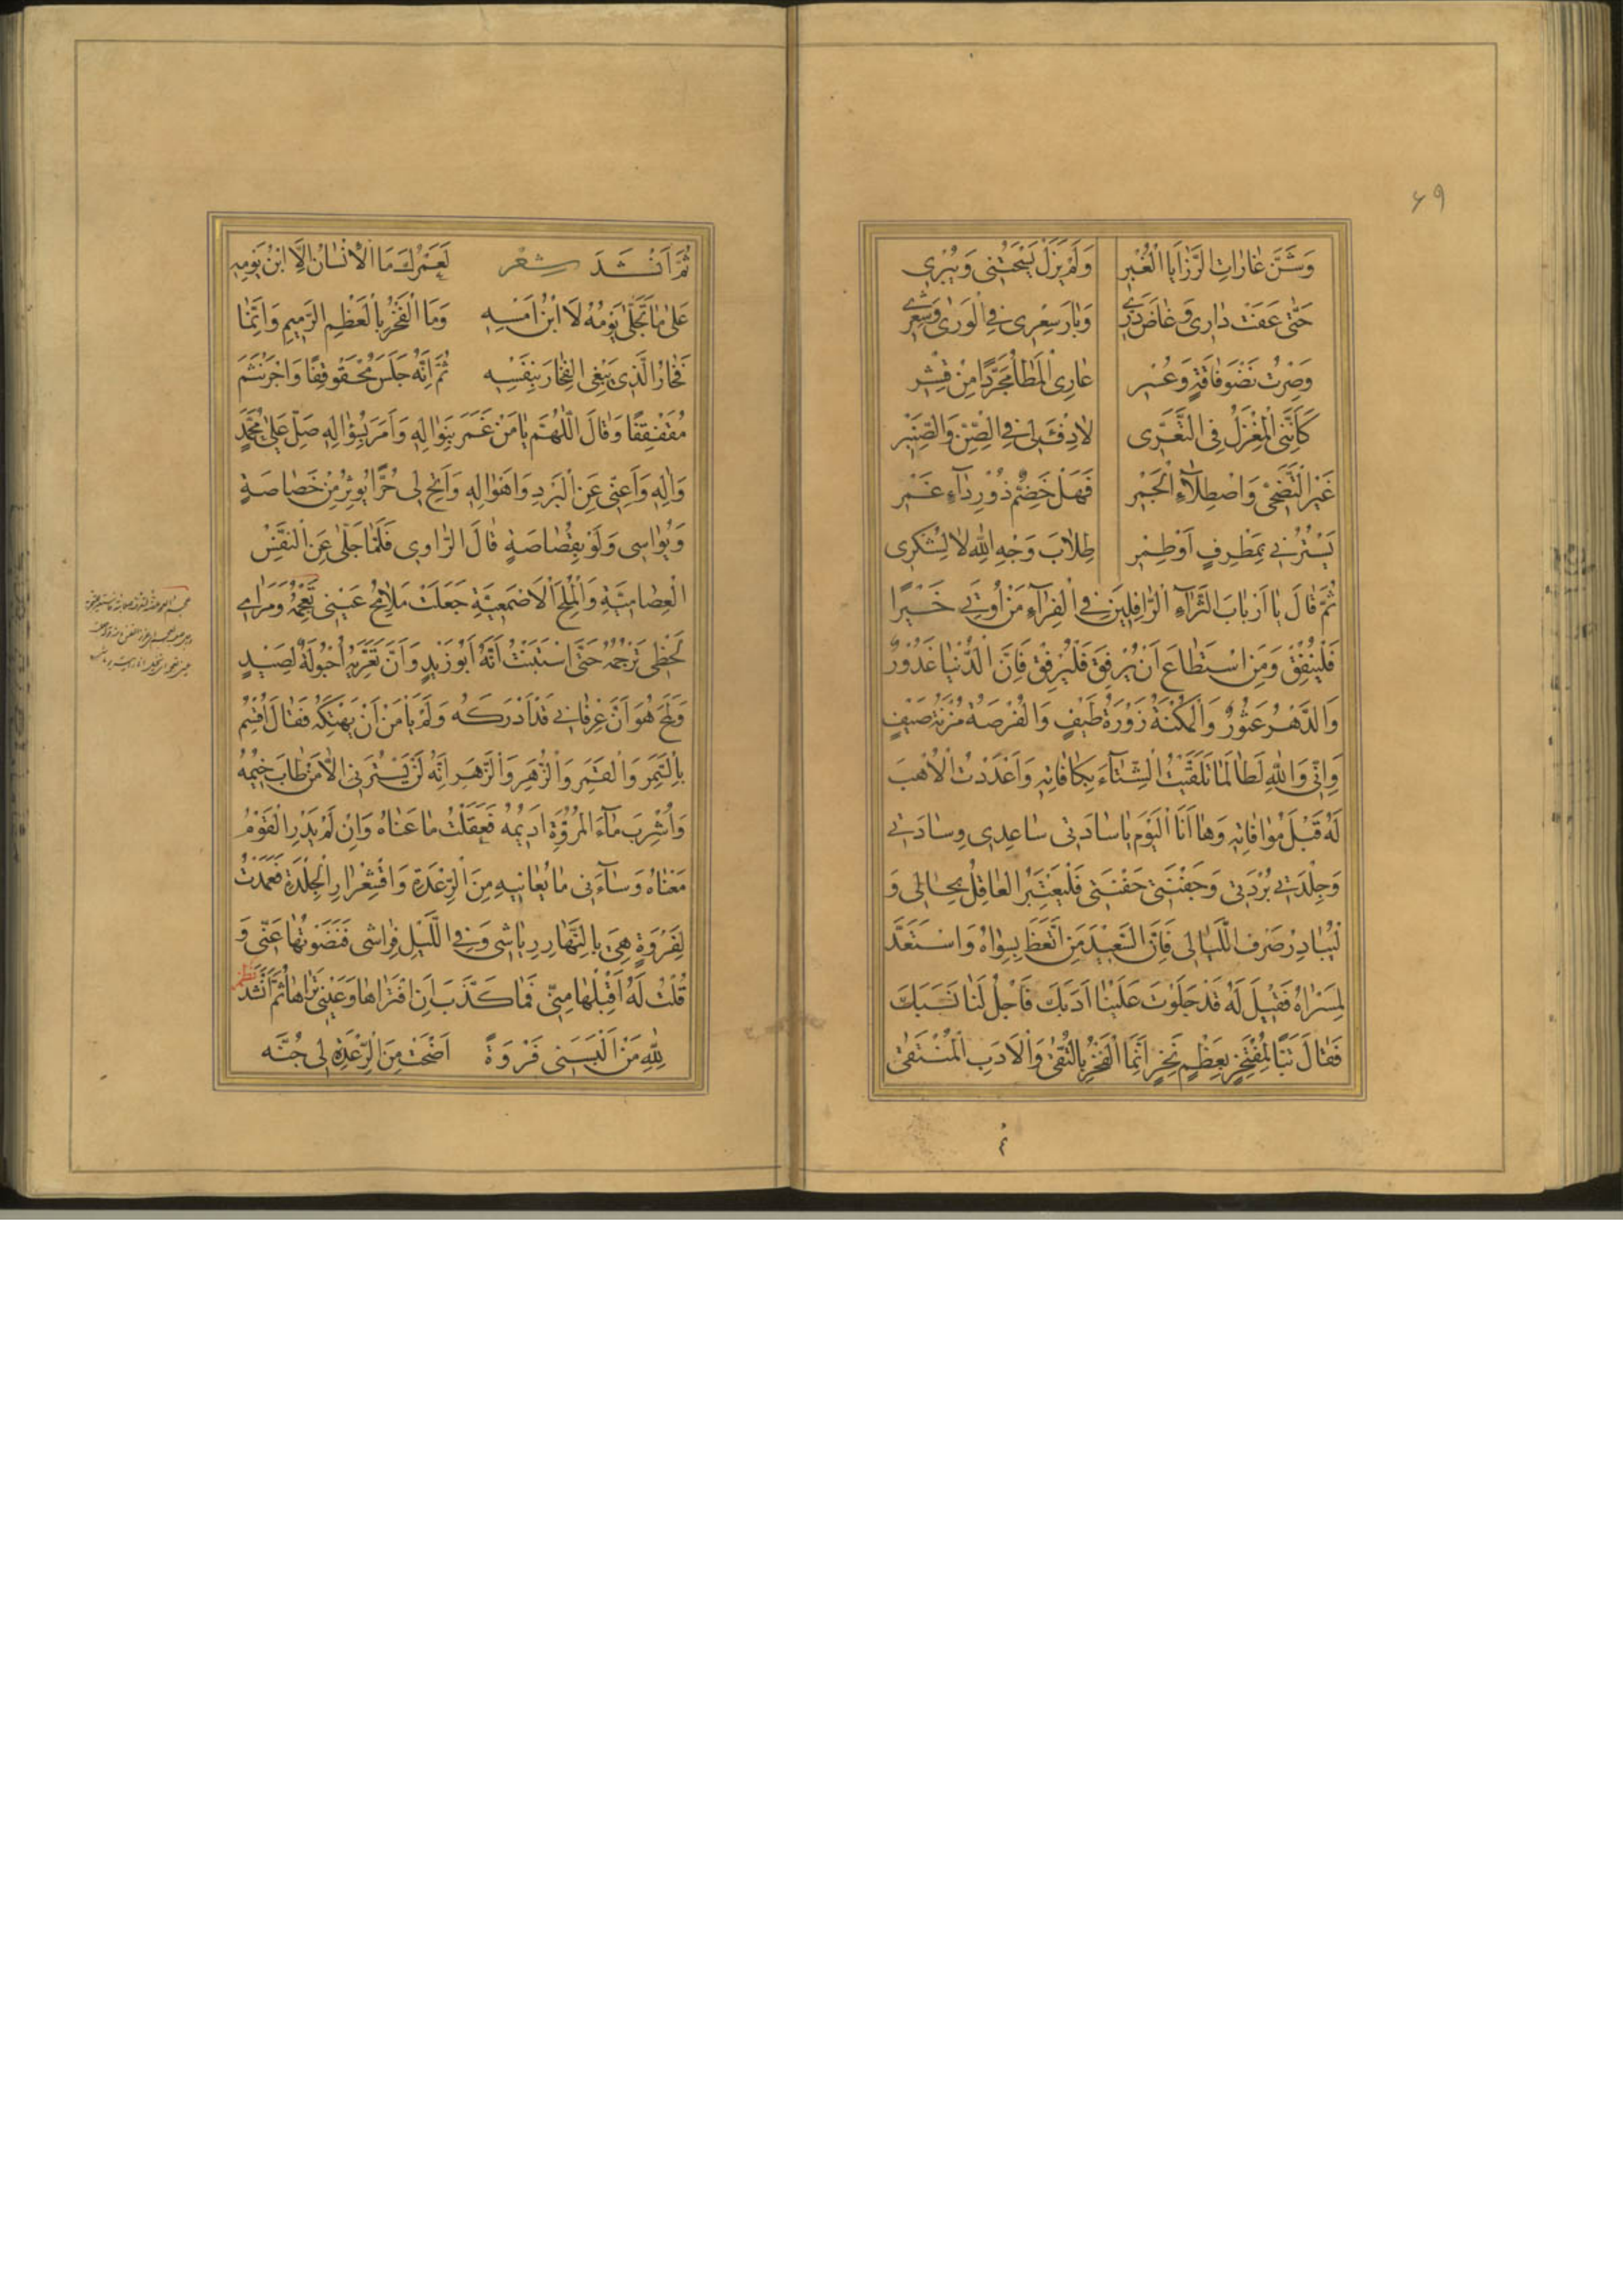 ٤٩
وَشَنَّ غَارَاتِ الرَّزَايَا الْغُبْرِ وَلَمْ يَزَلْ يَسْحَتُنِي وَيَبْرِي
حَتَّى عَفَتْ دَارِي وَغَاضَ دَرِّي وَبَارَ سِعْرِي فِي الْوَرَى وَشِعْرِي
وَصِرْتُ نِضْوَ فَاقَةٍ وَعُسْرِ عَارِي الْمَطَا مُجَرَّدًا مِنْ قِشْرِ
كَأَنَّنِي الْمِغْزَلُ فِي التَّعَرِّي لَا دِفْءَ لِي فِي الصِّنِّ وَالصِّنَّبْرِ
غَيْرَ التَّضَحِّي وَاصْطِلَاءِ الْجَمْرِ فَهَلْ خِضَمٌّ ذُو رِدَاءٍ غَمْرِ
يَسْتُرُنِي بِمِطْرَفٍ أَوْ طِمْرِ طِلَابَ وَجْهِ اللّٰهِ لَا لِشُكْرِي
ثُمَّ قَالَ يَا أَرْبَابَ الثَّرَاءِ الرَّافِلِينَ فِي الْفِرَاءِ مَنْ أُوتِيَ خَيْرًا
فَلْيُنْفِقْ وَمَنِ اسْتَطَاعَ أَنْ يُرْفِقَ فَلْيُرْفِقْ فَإِنَّ الدُّنْيَا غَدُورٌ
وَالدَّهْرُ عَثُورٌ وَالْمُكْنَةُ زَوْرَةُ طَيْفٍ وَالْفُرْصَةُ مُزْنَةُ صَيْفٍ
وَإِنِّي وَاللّٰهِ لَطَالَمَا تَلَقَّيْتُ الشِّتَاءَ بِكَافَاتِهِ وَأَعْدَدْتُ الْأُهَبَ
لَهُ قَبْلَ مُوَافَاتِهِ وَهَا أَنَا الْيَوْمَ يَا سَادَتِي سَاعِدِي وِسَادَتِي
وَجِلْدَتِي بُرْدَتِي وَحَفْنَتِي جَفْنَتِي فَلْيَعْتَبِرِ الْعَاقِلُ بِحَالِي وَ
لْيُبَادِرْ صَرْفَ اللَّيَالِي فَإِنَّ السَّعِيدَ مَنِ اتَّعَظَ بِسِوَاهُ وَاسْتَعَدَّ
لِمَسْرَاهُ فَقِيلَ لَهُ قَدْ جَلَوْتَ عَلَيْنَا أَدَبَكَ فَاجْلُ لَنَا نَسَبَكَ
فَقَالَ تَبًّا لِمُفْتَخِرٍ بِعَظْمٍ نَخِرٍ إِنَّمَا الْفَخْرُ بِالتُّقَى وَالْأَدَبِ الْمُنْتَقَى
ثُمَّ أَنْشَدَ شِعْر لَعَمْرُكَ مَا الْإِنْسَانُ إِلَّا ابْنُ يَوْمِهِ
عَلَى مَا تَجَلَّى يَوْمُهُ لَا ابْنُ أَمْسِهِ وَمَا الْفَخْرُ بِالْعَظْمِ الرَّمِيمِ وَإِنَّمَا
فَخَارُ الَّذِي يَبْغِي الْفِخَارَ بِنَفْسِهِ ثُمَّ إِنَّهُ جَلَسَ مُحْقَوْقِفًا وَاجْرَنْثَمَ
مُقَفْقِفًا وَقَالَ اللّٰهُمَّ يَا مَنْ غَمَرَ بِنَوَالِهِ وَأَمَرَ بِسُؤَالِهِ صَلِّ عَلَى مُحَمَّدٍ
وَآلِهِ وَأَعِنِّي عَنِ الْبَرْدِ وَأَهْوَالِهِ وَأَتِحْ لِي حُرًّا يُؤْثِرُ مِنْ خَصَاصَةٍ
وَيُوَاسِي وَلَوْ بِقُصَاصَةٍ قَالَ الرَّاوِي فَلَمَّا جَلَّى عَنِ النَّفْسِ
الْعِصَامِيَّةِ وَالْمُلَحِ الْأَصْمَعِيَّةِ جَعَلَتْ مَلَامِحُ عَيْنِي تَعْجُمُهُ وَمَرَامِي
لَحْظِي تَرْجُمُهُ حَتَّى اسْتَبَنْتُ أَنَّهُ أَبُو زَيْدٍ وَأَنَّ تَعَرِّيَهُ أُحْبُولَةُ صَيْدٍ
وَلَمَحَ هُوَ أَنَّ عِرْفَانِي قَدْ أَدْرَكَهُ وَلَمْ يَأْمَنْ أَنْ يَهْتِكَهُ فَقَالَ أُقْسِمُ
بِالسَّمَرِ وَالْقَمَرِ وَالزُّهْرِ وَالزَّهَرِ إِنَّهُ لَنْ يَسْتُرَنِي إِلَّا مَنْ طَابَ خِيمُهُ
وَأُشْرِبَ مَاءَ الْمُرُوَّةِ أَدِيمُهُ فَعَقَلْتُ مَا عَنَاهُ وَإِنْ لَمْ يَدْرِ الْقَوْمُ
مَعْنَاهُ وَسَاءَنِي مَا يُعَانِيهِ مِنَ الرِّعْدَةِ وَاقْشِعْرَارِ الْجِلْدَةِ فَعَمَدْتُ
لِفَرْوَةٍ هِيَ بِالنَّهَارِ رِيَاشِي وَفِي اللَّيْلِ فِرَاشِي فَنَضَوْتُهَا عَنِّي وَ
قُلْتُ لَهُ اقْبَلْهَا مِنِّي فَمَا كَذَّبَ أَنِ افْتَرَاهَا وَعَيْنِي تَرَاهَا ثُمَّ أَنْشَدَ نظم
لِلّٰهِ مَنْ أَلْبَسَنِي فَرْوَةً أَضْحَتْ مِنَ الرِّعْدَةِ لِي جُنَّه